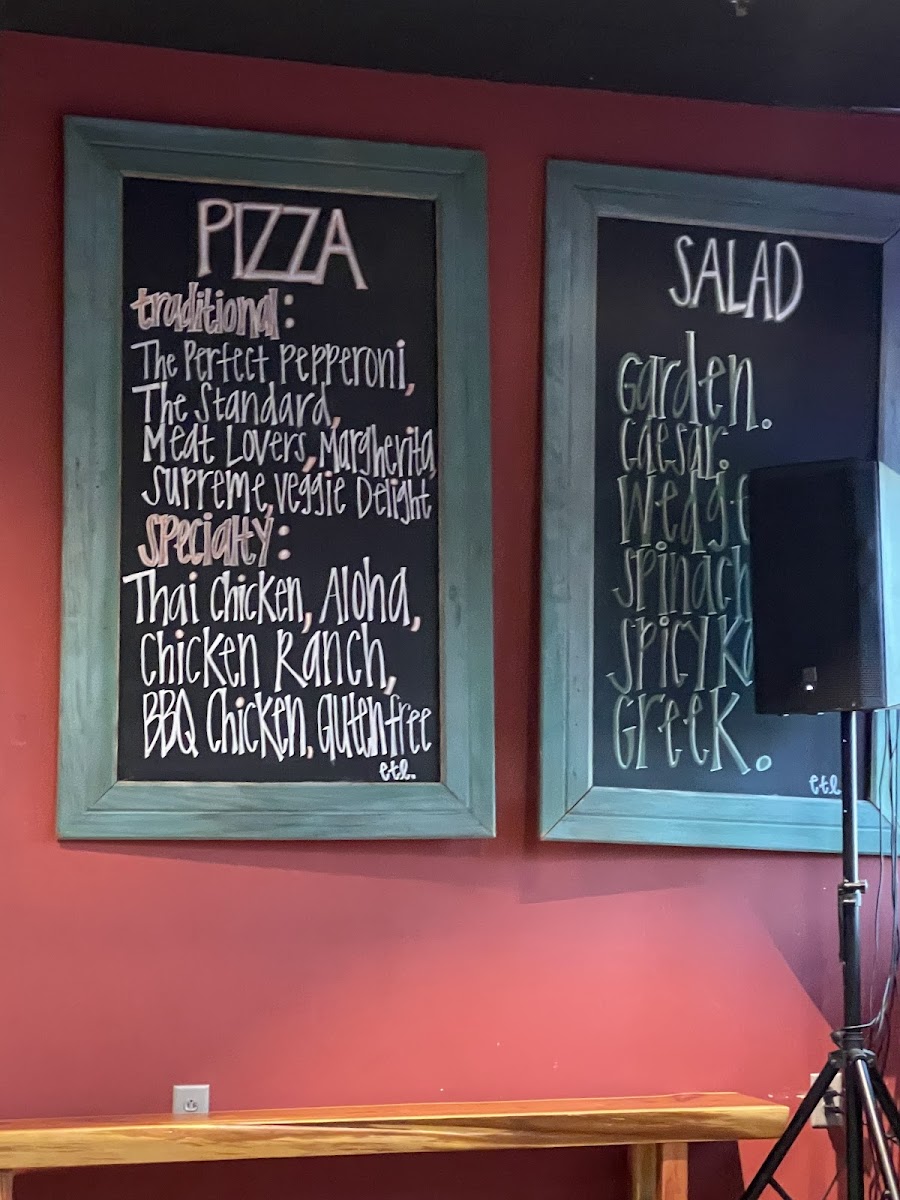 PIZZA
traditional:
The Perfect Pepperoni,
The Standard,
Meat Lovers, Margherita,
Supreme, Veggie Delight
specialty:
Thai Chicken, Aloha,
Chicken Ranch,
BBQ Chicken, Gluten free
etl.
SALAD
Garden.
Caesar.
Wedge
Spinach
Spicy
Greek.
etl.